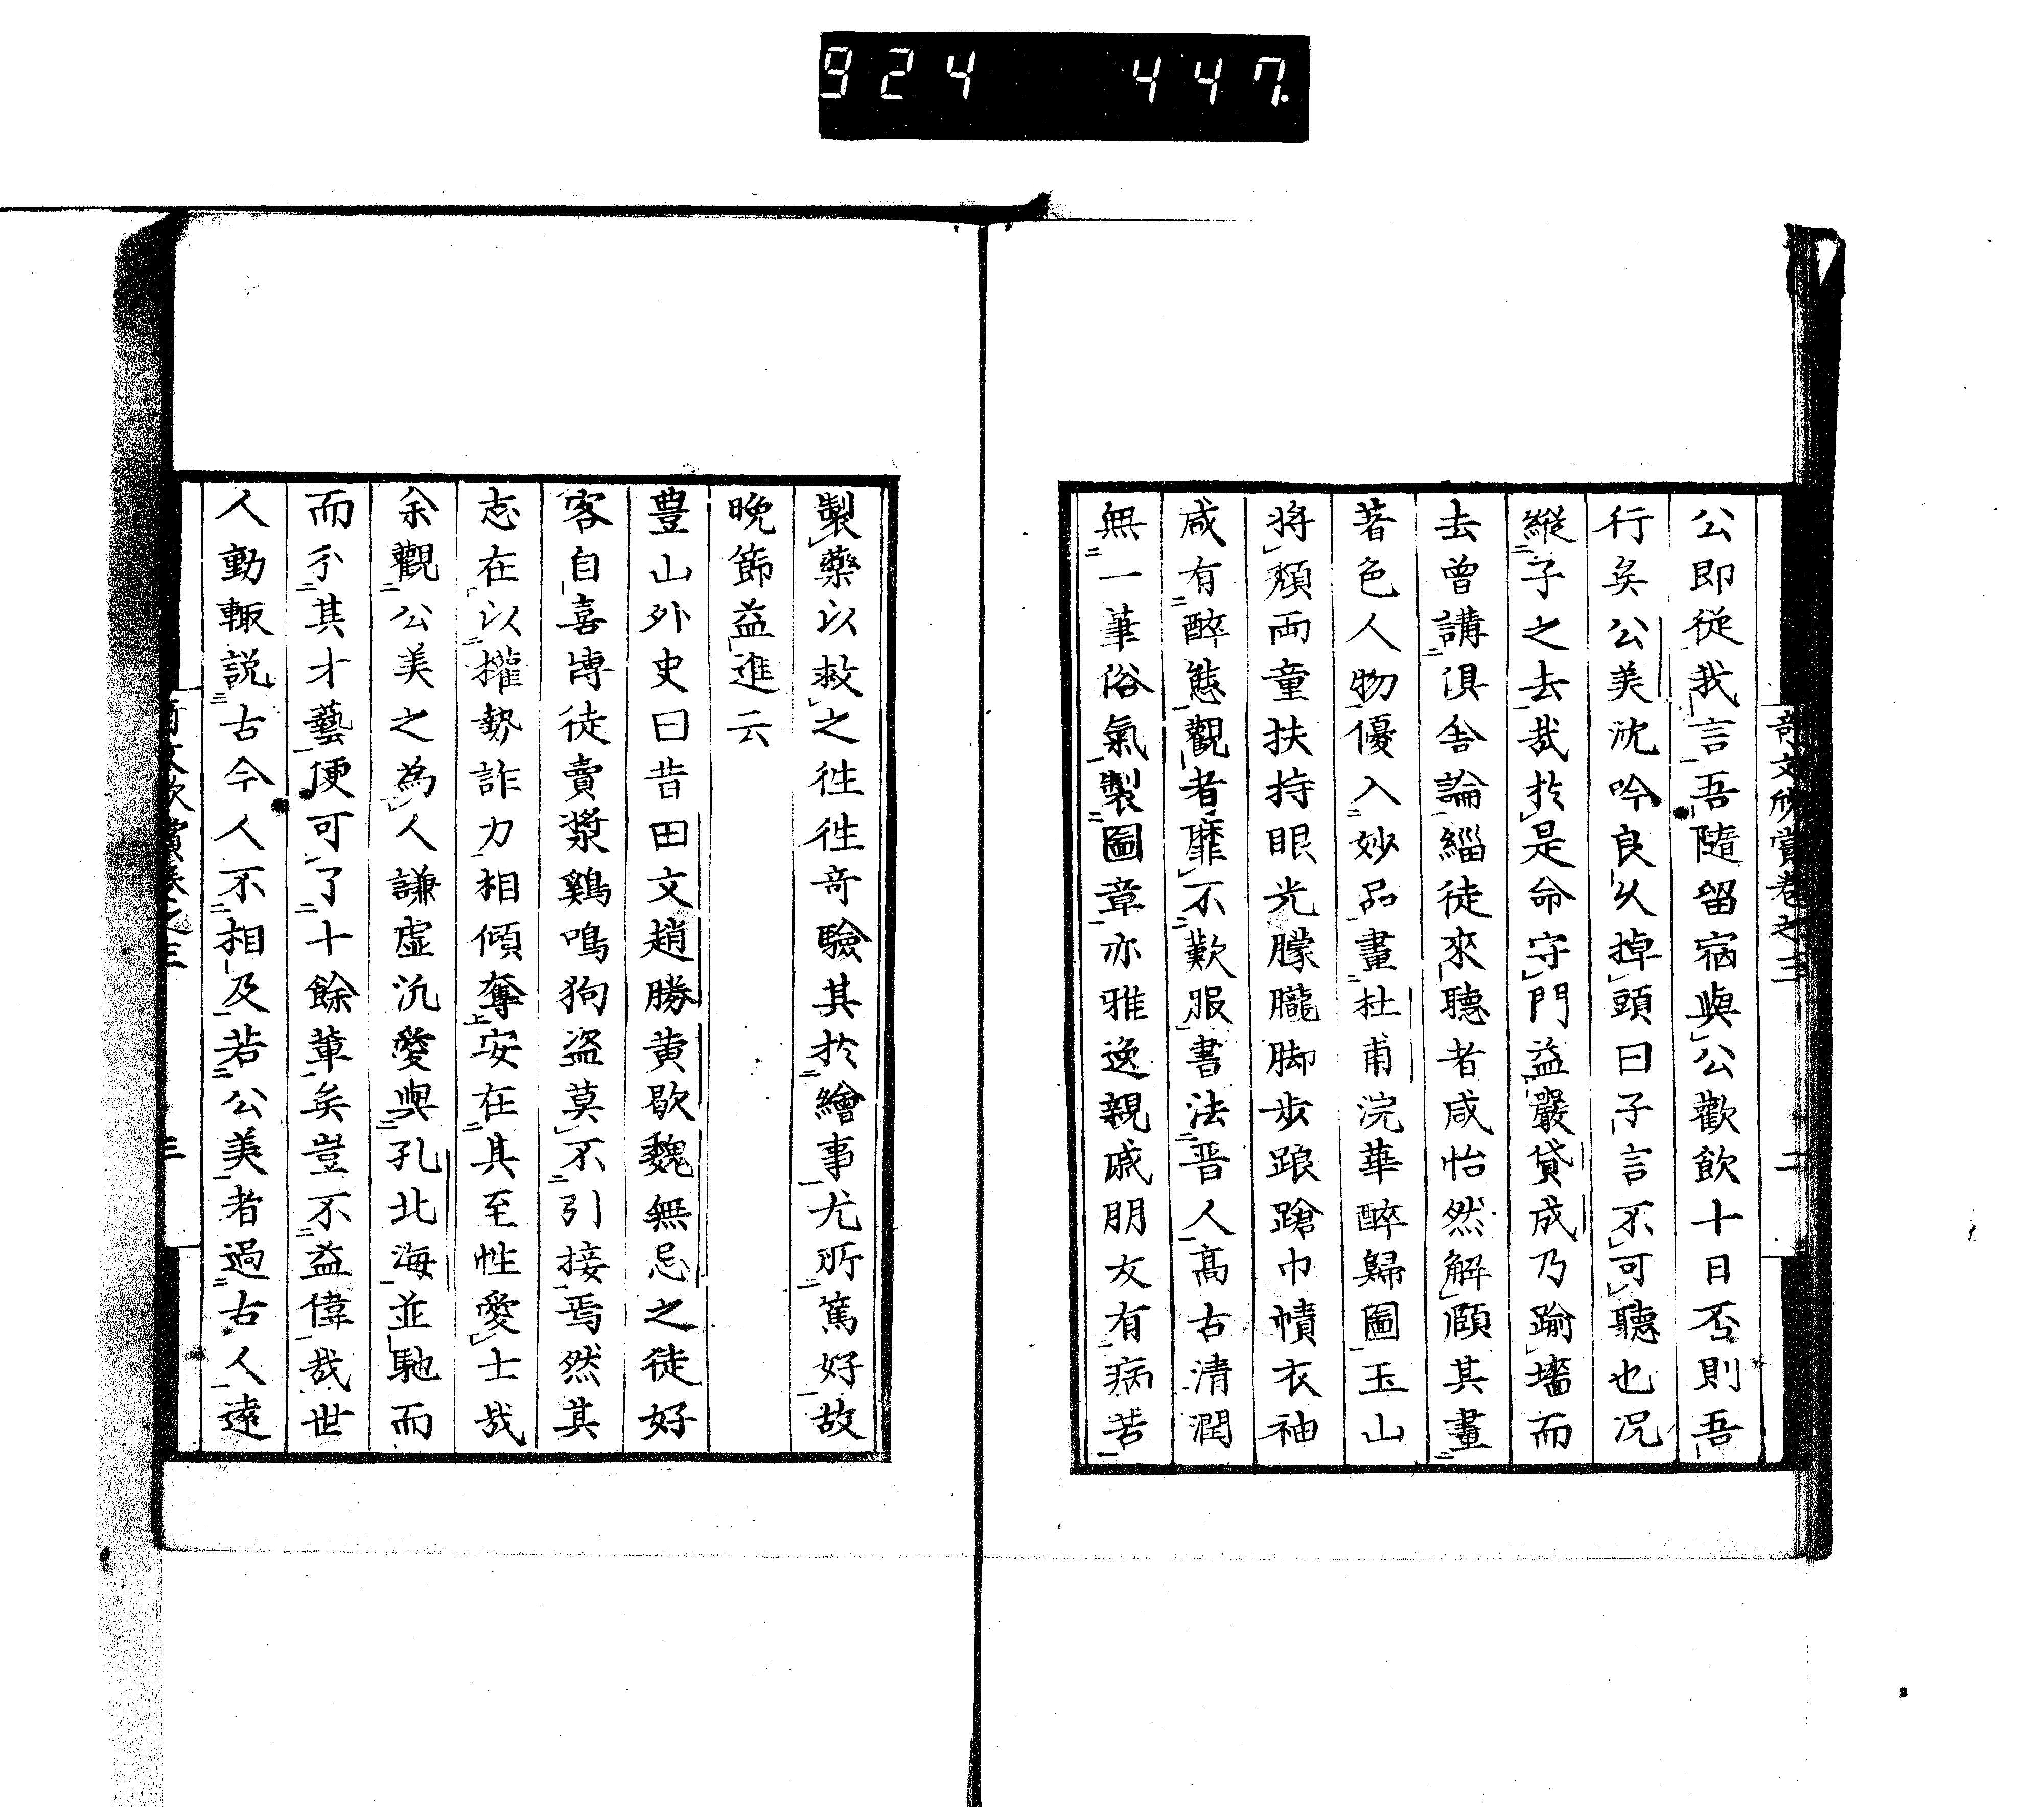 924 447.
奇文欣賞卷之三 二
公即從我言吾隨留宿與公歡飲十日否則吾
行矣公美沈吟良久掉頭曰子言不可聽也况
縱子之去哉於是命守門益嚴貸成乃踰墻而
去曾講俱舍論緇徒來聽者咸怡然解頤其畫
著色人物優入妙品畫杜甫浣華醉歸圖玉山
將頽両童扶持眼光朦朧脚步踉蹌巾幘衣袖
咸有醉態觀者靡不歎服書法晋人高古清潤
無一筆俗氣製圖章亦雅逸親戚朋友有病苦
製藥以救之徃徃奇驗其於繪事尤所篤好故
晩節益進云
豊山外史曰昔田文趙勝黄歇魏無忌之徒好
客自喜博徒賣漿鷄鳴狗盗莫不引接焉然其
志在以權勢詐力相傾奪安在其至性愛士哉
余觀公美之為人謙虚汎愛與孔北海並馳而
而多其才藝便可了十餘軰矣豈不益偉哉世
人動輙説古今人不相及若公美者過古人遠
文欣賞卷之三 三